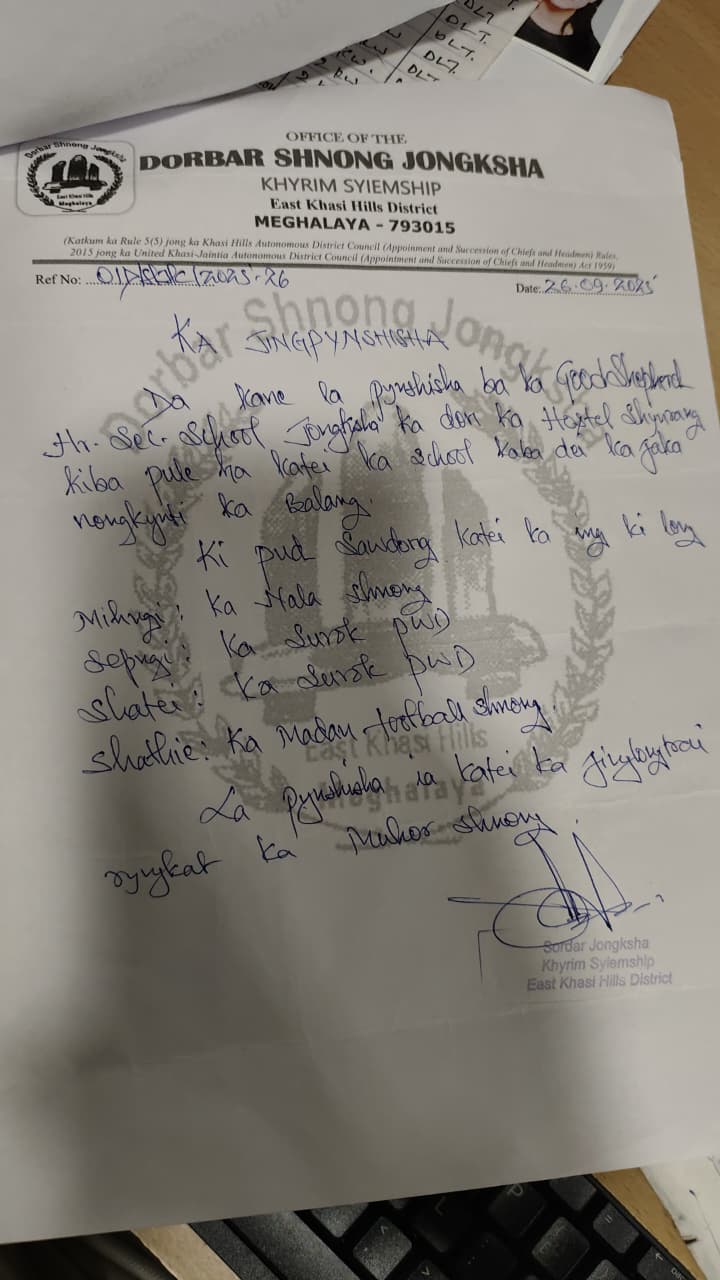 DLT.
DLT.
DLT.
DLT.
OFFICE OF THE
DORBAR SHNONG JONGKSHA
KHYRIM SYIEMSHIP
East Khasi Hills District
MEGHALAYA - 793015
(Katkum ka Rule 5(5) jong ka Khasi Hills Autonomous District Council (Appoinment and Succession of Chiefs and Headmen) Rules,
2015 jong ka United Khasi-Jaintia Autonomous District Council (Appointment and Succession of Chiefs and Headmen) Act 1959)
Dorbar Shnong Jongksha
East Khasi Hills
Meghalaya
Ref No: 2025-26
Date: 26.09.2025
KA JINGPYNSHISHA
Da kane la pynshisha ba ka Good Shepherd
Hr. Sec. School Jongksha ka don ka Hostel Shynrang
kiba pule ha katei ka School kaba dei ka jaka
nongkynti ka Balang.
Ki pud Sawdong katei ka ing ki long
Mihngi: Ka Nala shnong
Sepngi: Ka Surok PWD
Shatei: Ka Surok PWD
Shathie: Ka Madan football shnong.
La pynshisha ia katei ka jinglongtrai
ryngkat ka Muhor shnong.
Sordar Jongksha
Khyrim Syiemship
East Khasi Hills District
Dorbar Shnong Jongksha
East Khasi Hills
Meghalaya